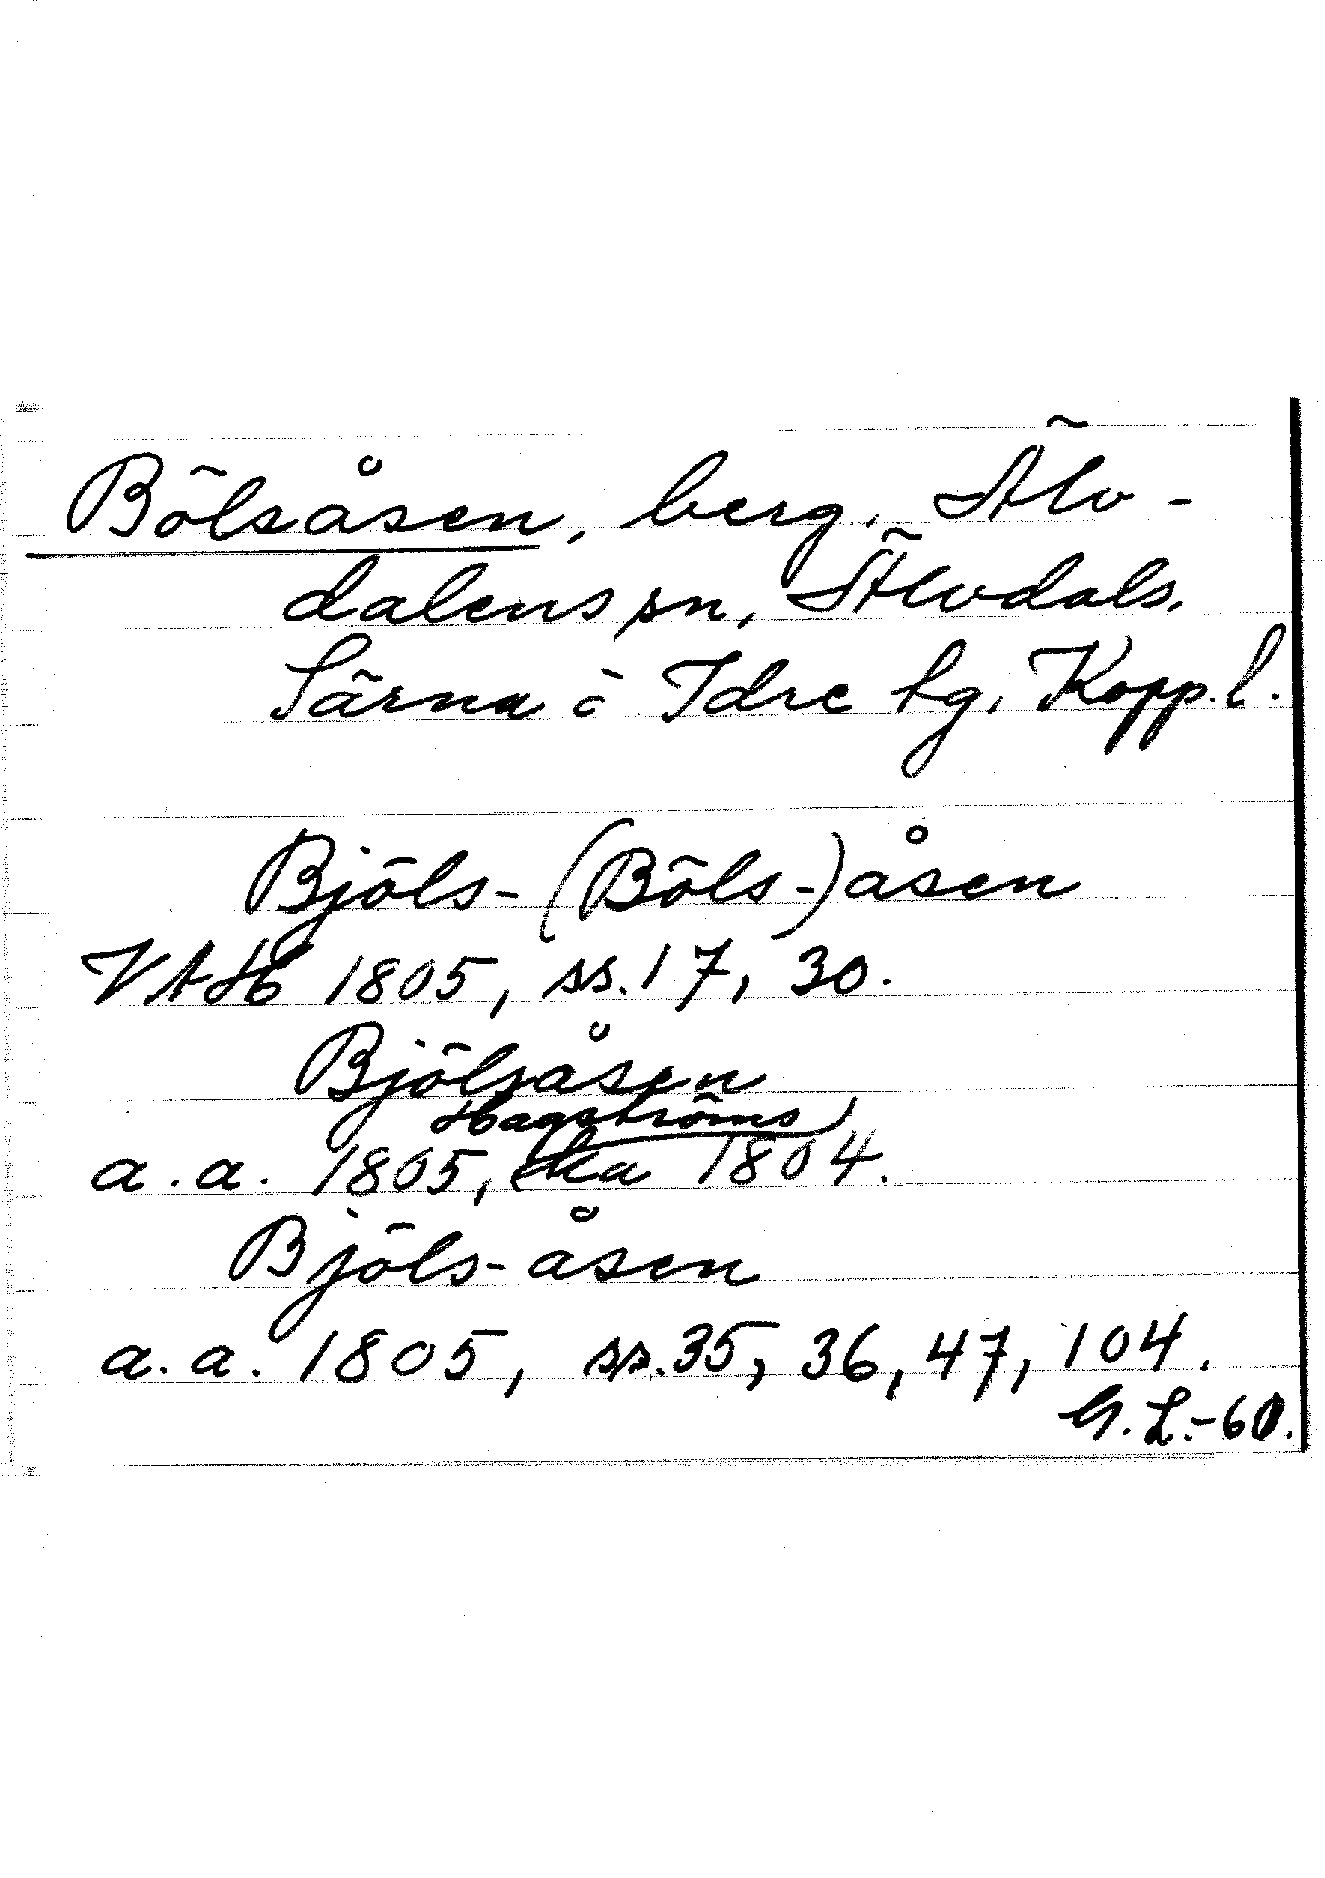 Bölsåsen, berg, Älv-
dalens sn, Älvdals,
Särna o Idre tg, Kopp.l.
Bjöls-(Böls-)åsen
VAH 1805, ss.17, 30.
Bjölsåsen
Hagströms
a.a. 1805, ka 1804.
Bjöls-åsen
a.a. 1805, ss.35, 36, 47, 104.
G.L.-60.